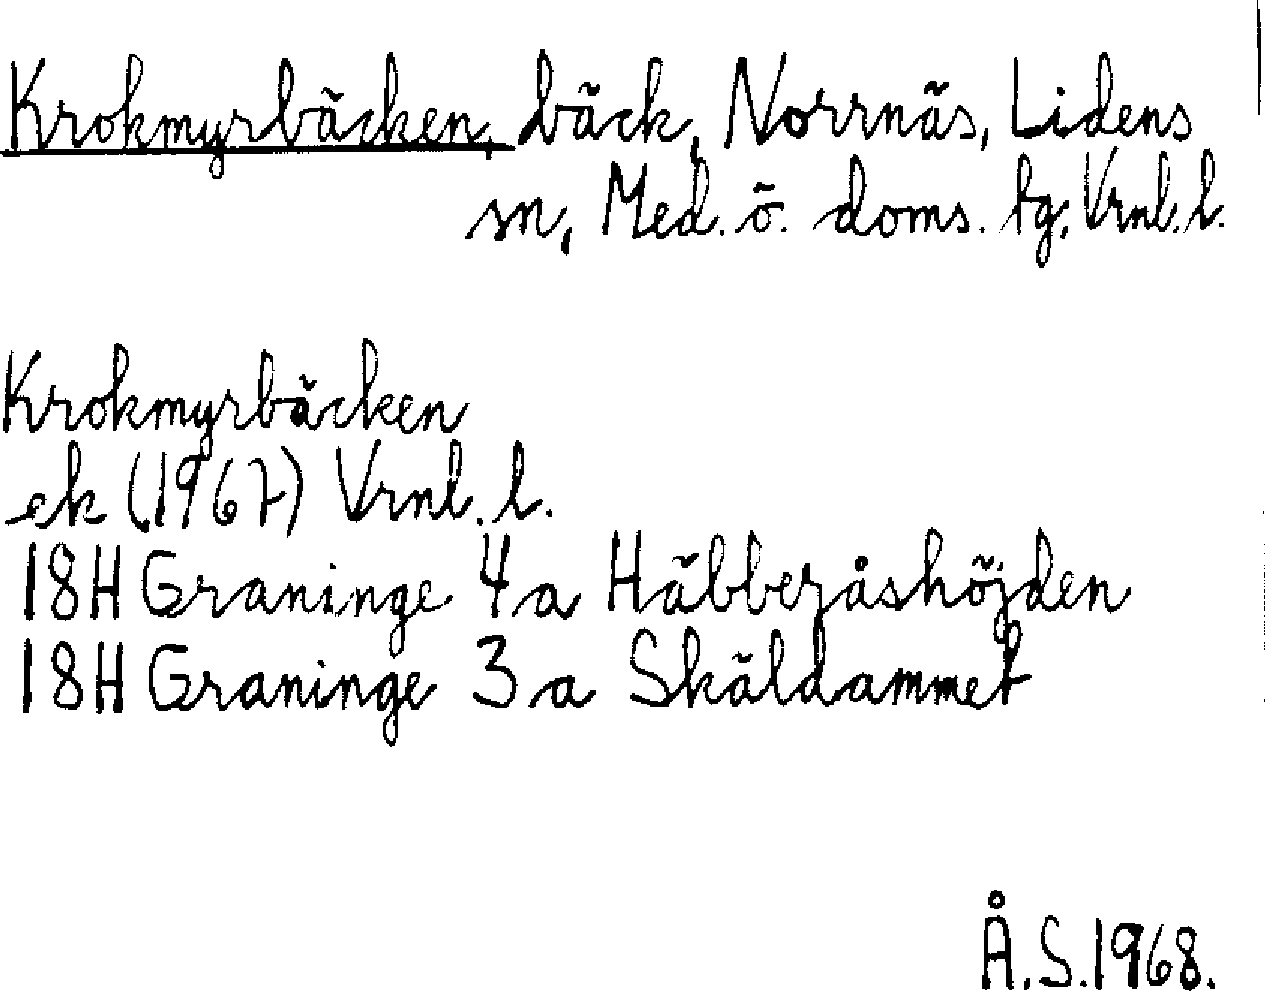 Krokmyrbäcken, bäck, Norrnäs, Lidens
sn, Med. ö. doms. tg, Vrnl. l.
Krokmyrbäcken
ek (1967) Vrnl. l.
18H Graninge 4a Häbberåshöjden
18H Graninge 3a Skäldammet
Å.S.1968.